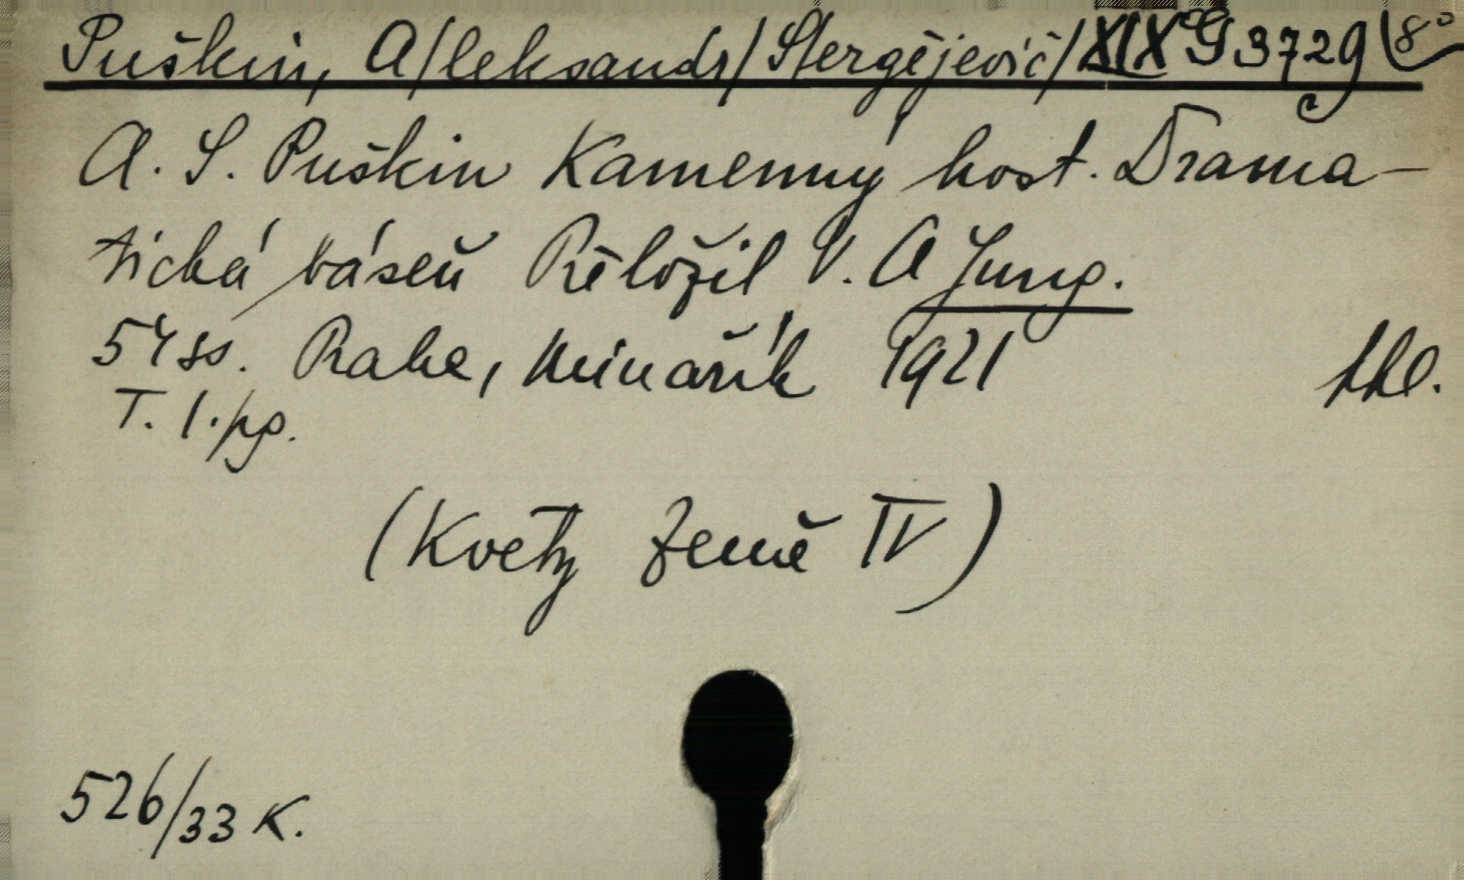 Puškin, A/leksandr/ S/ergějevič/ XIX G 3729 8°
A. S. Puškin Kamenný host. Drama-
tická báseň Přeložil V. A Jung.
54 ss. Praha, Minařík 1921
T. 1. pg.
(Květy Země IV)
526/33 K.